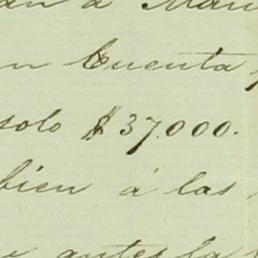 an á Man
en Cuenta
solo $37.000.
bien á las
antes la